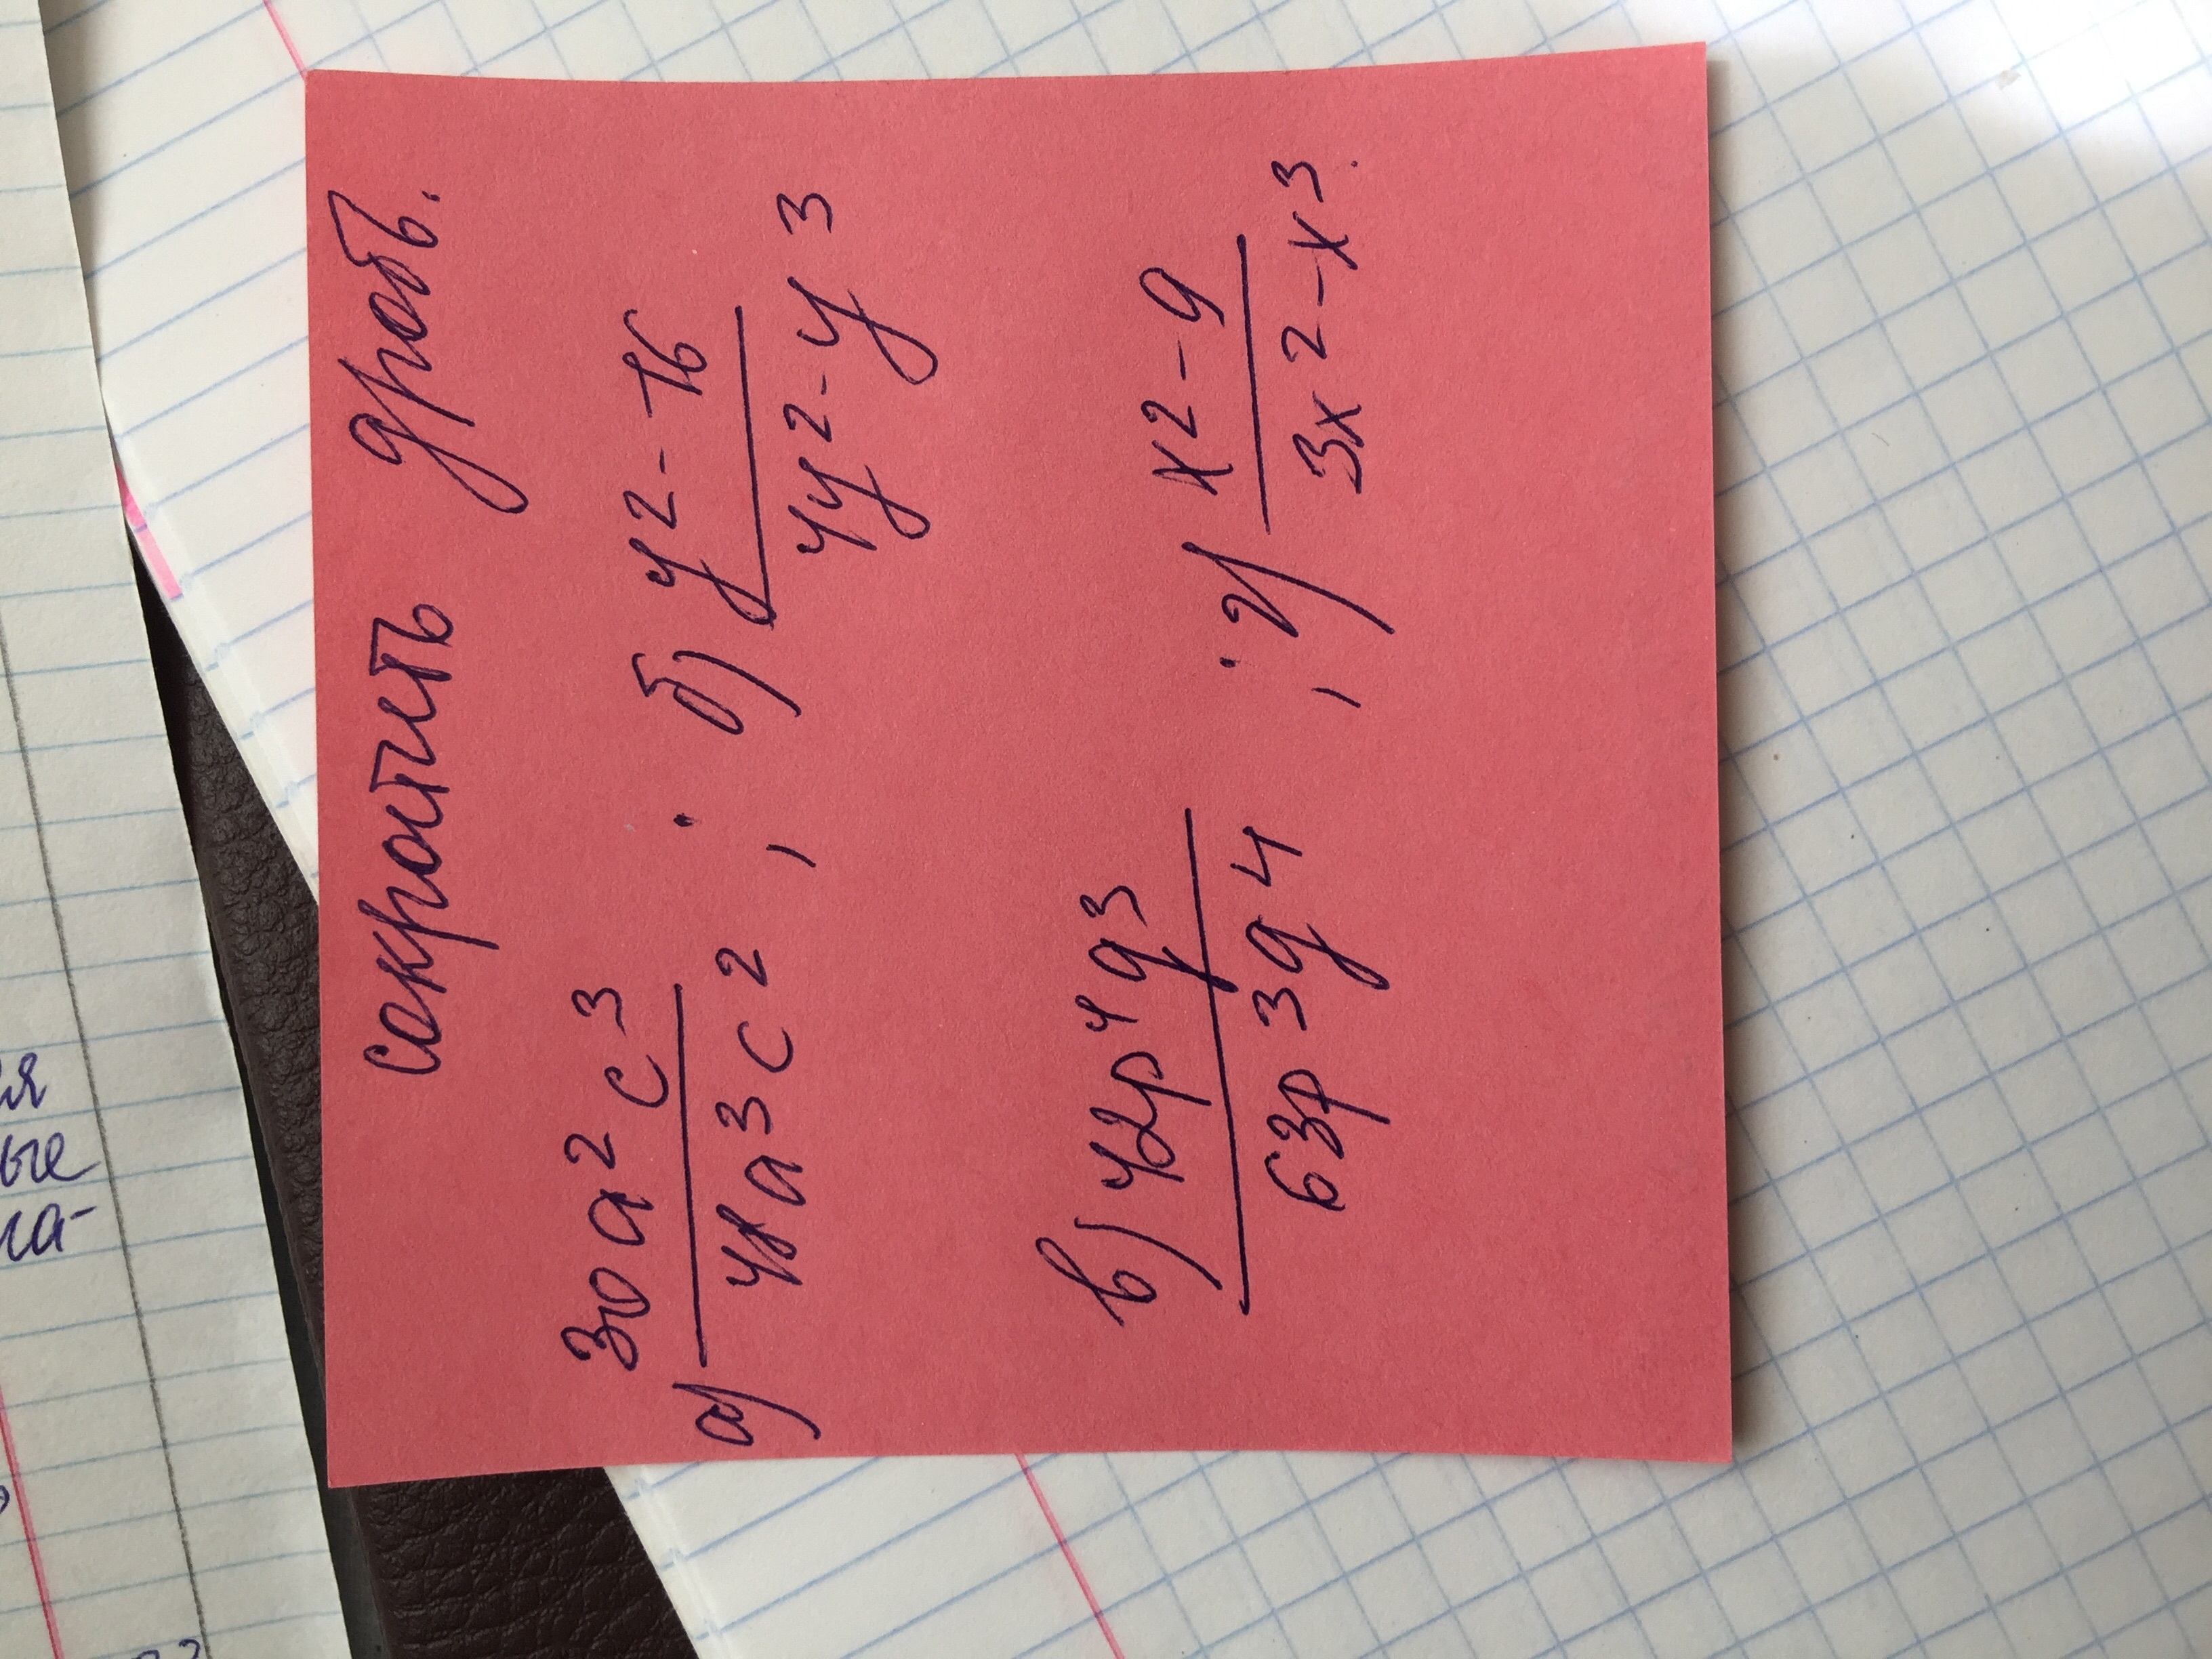 сократить дробь.
а) 30a²c³ / 48a³c² ; б) y² - 16 / 4y² - y³
в) 42p⁴q³ / 63p³q⁴ ; г) x² - 9 / 3x² - x³.
ия
ые
ла-